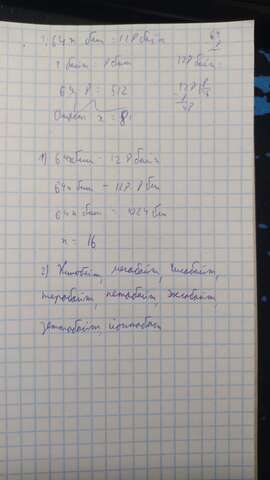 64x бит = 128 байт
1 байт = 8 бит
64
8
64 · 8 = 512
Ответ x = 8
1) 64x бит - 128 байт
64x бит - 128 · 8 бит
64x бит - 1024 бит
x = 16
2) Килобайт, мегабайт, гигабайт,
терабайт, петабайт, эксабайт,
зеттабайт, йоттабайт